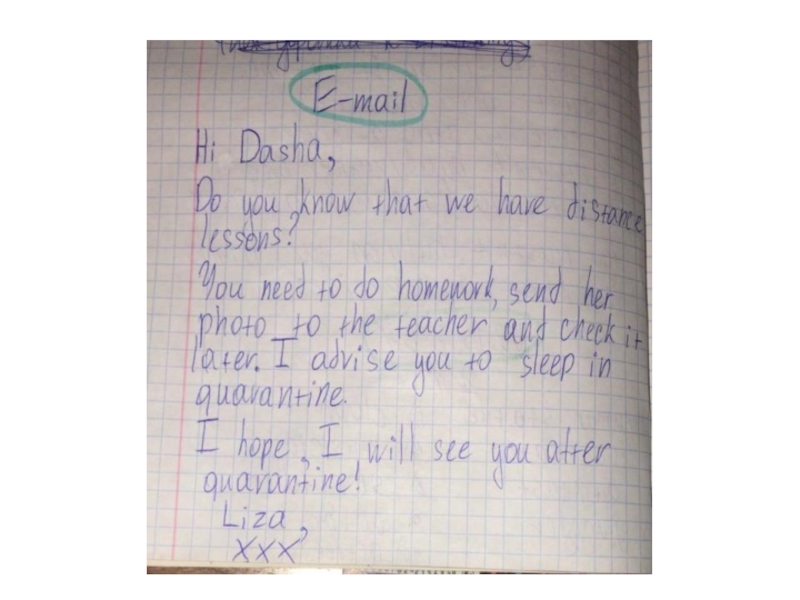 E-mail
Hi Dasha,
Do you know that we have distance
lessons?
You need to do homework, send her
photo to the teacher and check it
later. I advise you to sleep in
quarantine.
I hope, I will see you after
quarantine!
Liza,
XXX